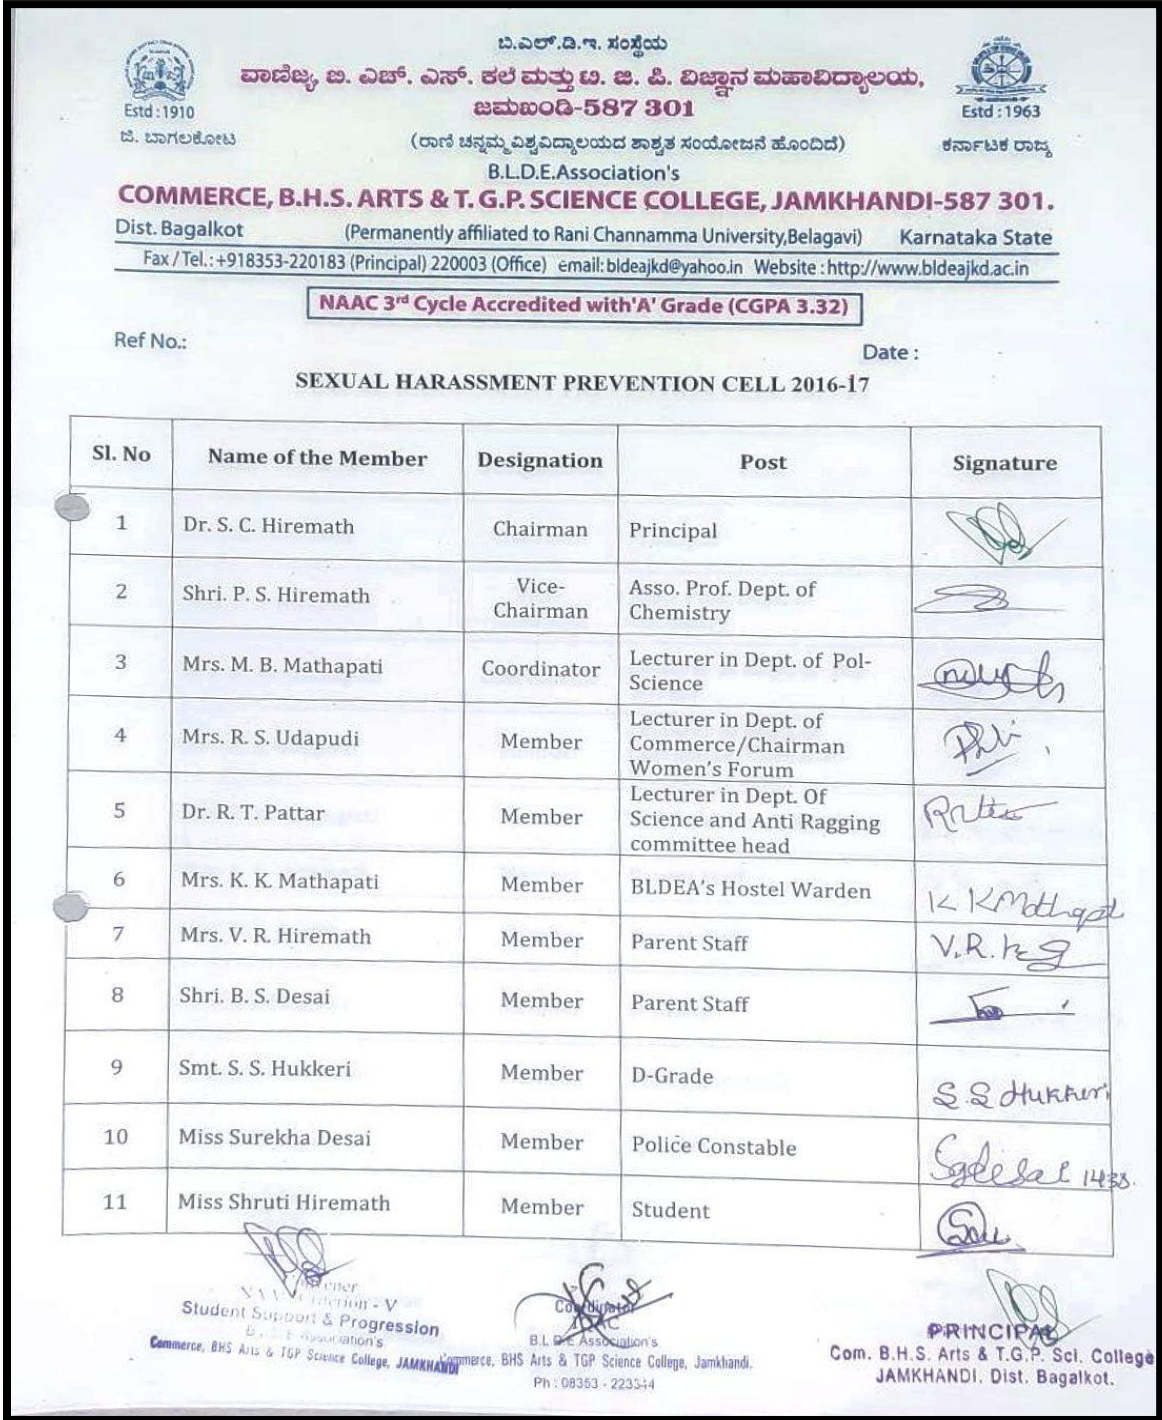 ಬಿ.ಎಲ್.ಡಿ.ಇ. ಸಂಸ್ಥೆಯ
ವಾಣಿಜ್ಯ, ಬಿ. ಎಚ್. ಎಸ್. ಕಲೆ ಮತ್ತು ಟಿ. ಜಿ. ಪಿ. ವಿಜ್ಞಾನ ಮಹಾವಿದ್ಯಾಲಯ,
ಜಮಖಂಡಿ-587 301
Estd :1910
Estd :1963
ಜಿ. ಬಾಗಲಕೋಟ
(ರಾಣಿ ಚನ್ನಮ್ಮ ವಿಶ್ವವಿದ್ಯಾಲಯದ ಶಾಶ್ವತ ಸಂಯೋಜನೆ ಹೊಂದಿದೆ)
ಕರ್ನಾಟಕ ರಾಜ್ಯ
B.L.D.E.Association's
COMMERCE, B.H.S. ARTS & T. G.P. SCIENCE COLLEGE, JAMKHANDI-587 301.
Dist. Bagalkot (Permanently affiliated to Rani Channamma University,Belagavi) Karnataka State
Fax / Tel.: +918353-220183 (Principal) 220003 (Office) email: bldeajkd@yahoo.in Website : http://www.bldeajkd.ac.in
NAAC 3rd Cycle Accredited with 'A' Grade (CGPA 3.32)
Ref No.:
Date :
SEXUAL HARASSMENT PREVENTION CELL 2016-17
Sl. No Name of the Member Designation Post Signature
1 Dr. S. C. Hiremath Chairman Principal
2 Shri. P. S. Hiremath Vice-
Chairman Asso. Prof. Dept. of
Chemistry
3 Mrs. M. B. Mathapati Coordinator Lecturer in Dept. of Pol-
Science
4 Mrs. R. S. Udapudi Member Lecturer in Dept. of
Commerce/Chairman
Women's Forum
5 Dr. R. T. Pattar Member Lecturer in Dept. Of
Science and Anti Ragging
committee head
6 Mrs. K. K. Mathapati Member BLDEA's Hostel Warden
7 Mrs. V. R. Hiremath Member Parent Staff
8 Shri. B. S. Desai Member Parent Staff
9 Smt. S. S. Hukkeri Member D-Grade S.S Hukkeri
10 Miss Surekha Desai Member Police Constable
11 Miss Shruti Hiremath Member Student
Student Support & Progression
Commerce, BHS Arts & TGP Science College, JAMKHANDI
Coordinator
B.L.D.E Association's
Commerce, BHS Arts & TGP Science College, Jamkhandi.
PRINCIPAL
Com. B.H.S. Arts & T.G.P. Sci. College
JAMKHANDI. Dist. Bagalkot.